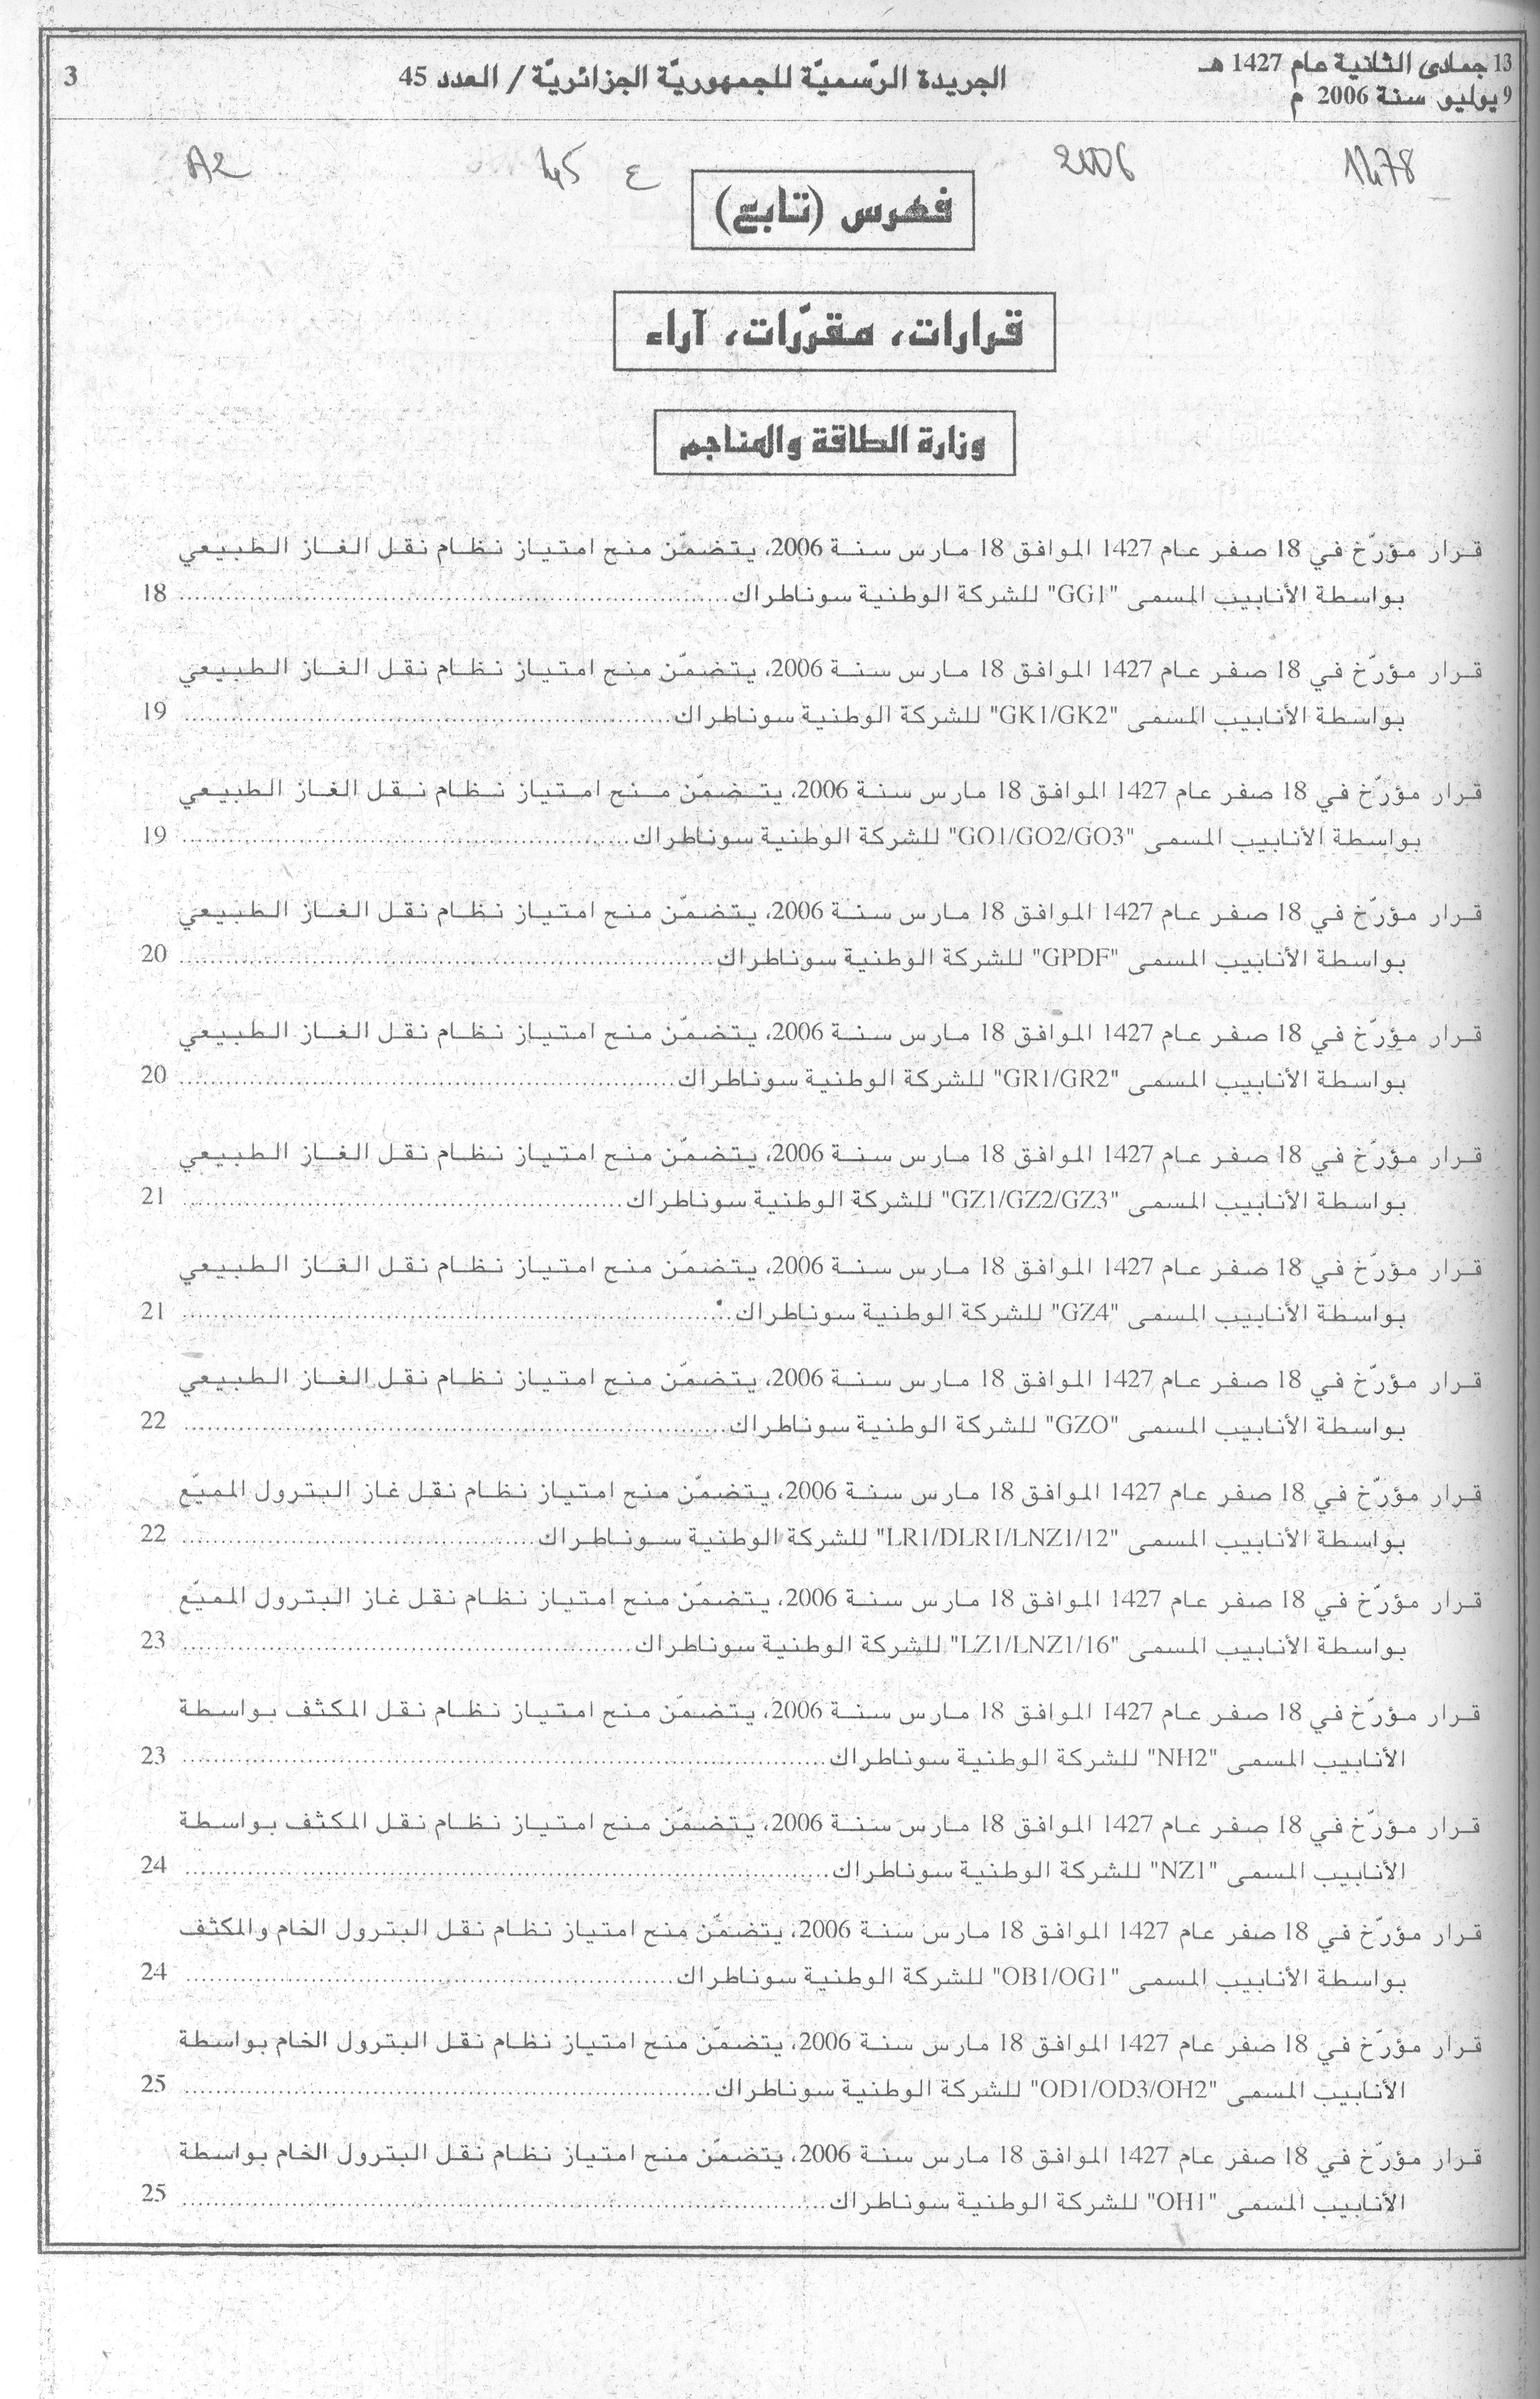 13 جمادى الثانية عام 1427 هـ
9 يوليو سنة 2006 م
الجريدة الرّسميّة للجمهوريّة الجزائريّة / العدد 45
3
1478
2006
ع 45
A2
فهرس (تابع)
قرارات، مقرّرات، آراء
وزارة الطاقة والمناجم
قرار مؤرّخ في 18 صفر عام 1427 الموافق 18 مارس سنة 2006، يتضمّن منح امتياز نظام نقل الغاز الطبيعي
بواسطة الأنابيب المسمى "GG1" للشركة الوطنية سوناطراك ........ 18
قرار مؤرّخ في 18 صفر عام 1427 الموافق 18 مارس سنة 2006، يتضمّن منح امتياز نظام نقل الغاز الطبيعي
بواسطة الأنابيب المسمى "GK1/GK2" للشركة الوطنية سوناطراك ........ 19
قرار مؤرّخ في 18 صفر عام 1427 الموافق 18 مارس سنة 2006، يتضمّن منح امتياز نظام نقل الغاز الطبيعي
بواسطة الأنابيب المسمى "GO1/GO2/GO3" للشركة الوطنية سوناطراك ........ 19
قرار مؤرّخ في 18 صفر عام 1427 الموافق 18 مارس سنة 2006، يتضمّن منح امتياز نظام نقل الغاز الطبيعي
بواسطة الأنابيب المسمى "GPDF" للشركة الوطنية سوناطراك ........ 20
قرار مؤرّخ في 18 صفر عام 1427 الموافق 18 مارس سنة 2006، يتضمّن منح امتياز نظام نقل الغاز الطبيعي
بواسطة الأنابيب المسمى "GR1/GR2" للشركة الوطنية سوناطراك ........ 20
قرار مؤرّخ في 18 صفر عام 1427 الموافق 18 مارس سنة 2006، يتضمّن منح امتياز نظام نقل الغاز الطبيعي
بواسطة الأنابيب المسمى "GZ1/GZ2/GZ3" للشركة الوطنية سوناطراك ........ 21
قرار مؤرّخ في 18 صفر عام 1427 الموافق 18 مارس سنة 2006، يتضمّن منح امتياز نظام نقل الغاز الطبيعي
بواسطة الأنابيب المسمى "GZ4" للشركة الوطنية سوناطراك ........ 21
قرار مؤرّخ في 18 صفر عام 1427 الموافق 18 مارس سنة 2006، يتضمّن منح امتياز نظام نقل الغاز الطبيعي
بواسطة الأنابيب المسمى "GZO" للشركة الوطنية سوناطراك ........ 22
قرار مؤرّخ في 18 صفر عام 1427 الموافق 18 مارس سنة 2006، يتضمّن منح امتياز نظام نقل غاز البترول المميّع
بواسطة الأنابيب المسمى "LR1/DLR1/LNZ1/12" للشركة الوطنية سوناطراك ........ 22
قرار مؤرّخ في 18 صفر عام 1427 الموافق 18 مارس سنة 2006، يتضمّن منح امتياز نظام نقل غاز البترول المميّع
بواسطة الأنابيب المسمى "LZ1/LNZ1/16" للشركة الوطنية سوناطراك ........ 23
قرار مؤرّخ في 18 صفر عام 1427 الموافق 18 مارس سنة 2006، يتضمّن منح امتياز نظام نقل المكثف بواسطة
الأنابيب المسمى "NH2" للشركة الوطنية سوناطراك ........ 23
قرار مؤرّخ في 18 صفر عام 1427 الموافق 18 مارس سنة 2006، يتضمّن منح امتياز نظام نقل المكثف بواسطة
الأنابيب المسمى "NZ1" للشركة الوطنية سوناطراك ........ 24
قرار مؤرّخ في 18 صفر عام 1427 الموافق 18 مارس سنة 2006، يتضمّن منح امتياز نظام نقل البترول الخام والمكثف
بواسطة الأنابيب المسمى "OB1/OG1" للشركة الوطنية سوناطراك ........ 24
قرار مؤرّخ في 18 صفر عام 1427 الموافق 18 مارس سنة 2006، يتضمّن منح امتياز نظام نقل البترول الخام بواسطة
الأنابيب المسمى "OD1/OD3/OH2" للشركة الوطنية سوناطراك ........ 25
قرار مؤرّخ في 18 صفر عام 1427 الموافق 18 مارس سنة 2006، يتضمّن منح امتياز نظام نقل البترول الخام بواسطة
الأنابيب المسمى "OH1" للشركة الوطنية سوناطراك ........ 25